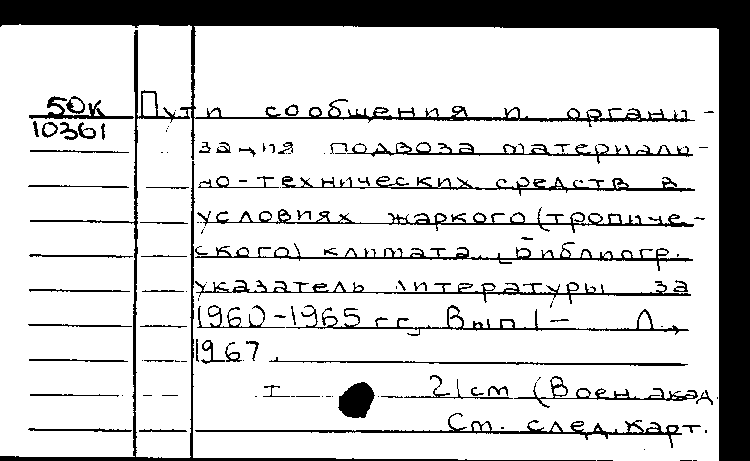 50к
10361
Пути сообщения и органи-
зация подвоза материаль-
но-технических средств в
условиях жаркого (тропиче-
ского) климата. [Библиогр.
указатель литературы за
1960-1965 гг. Вып. 1- Л.,
1967.
т 21 см (Воен. акад.
См. след. карт.